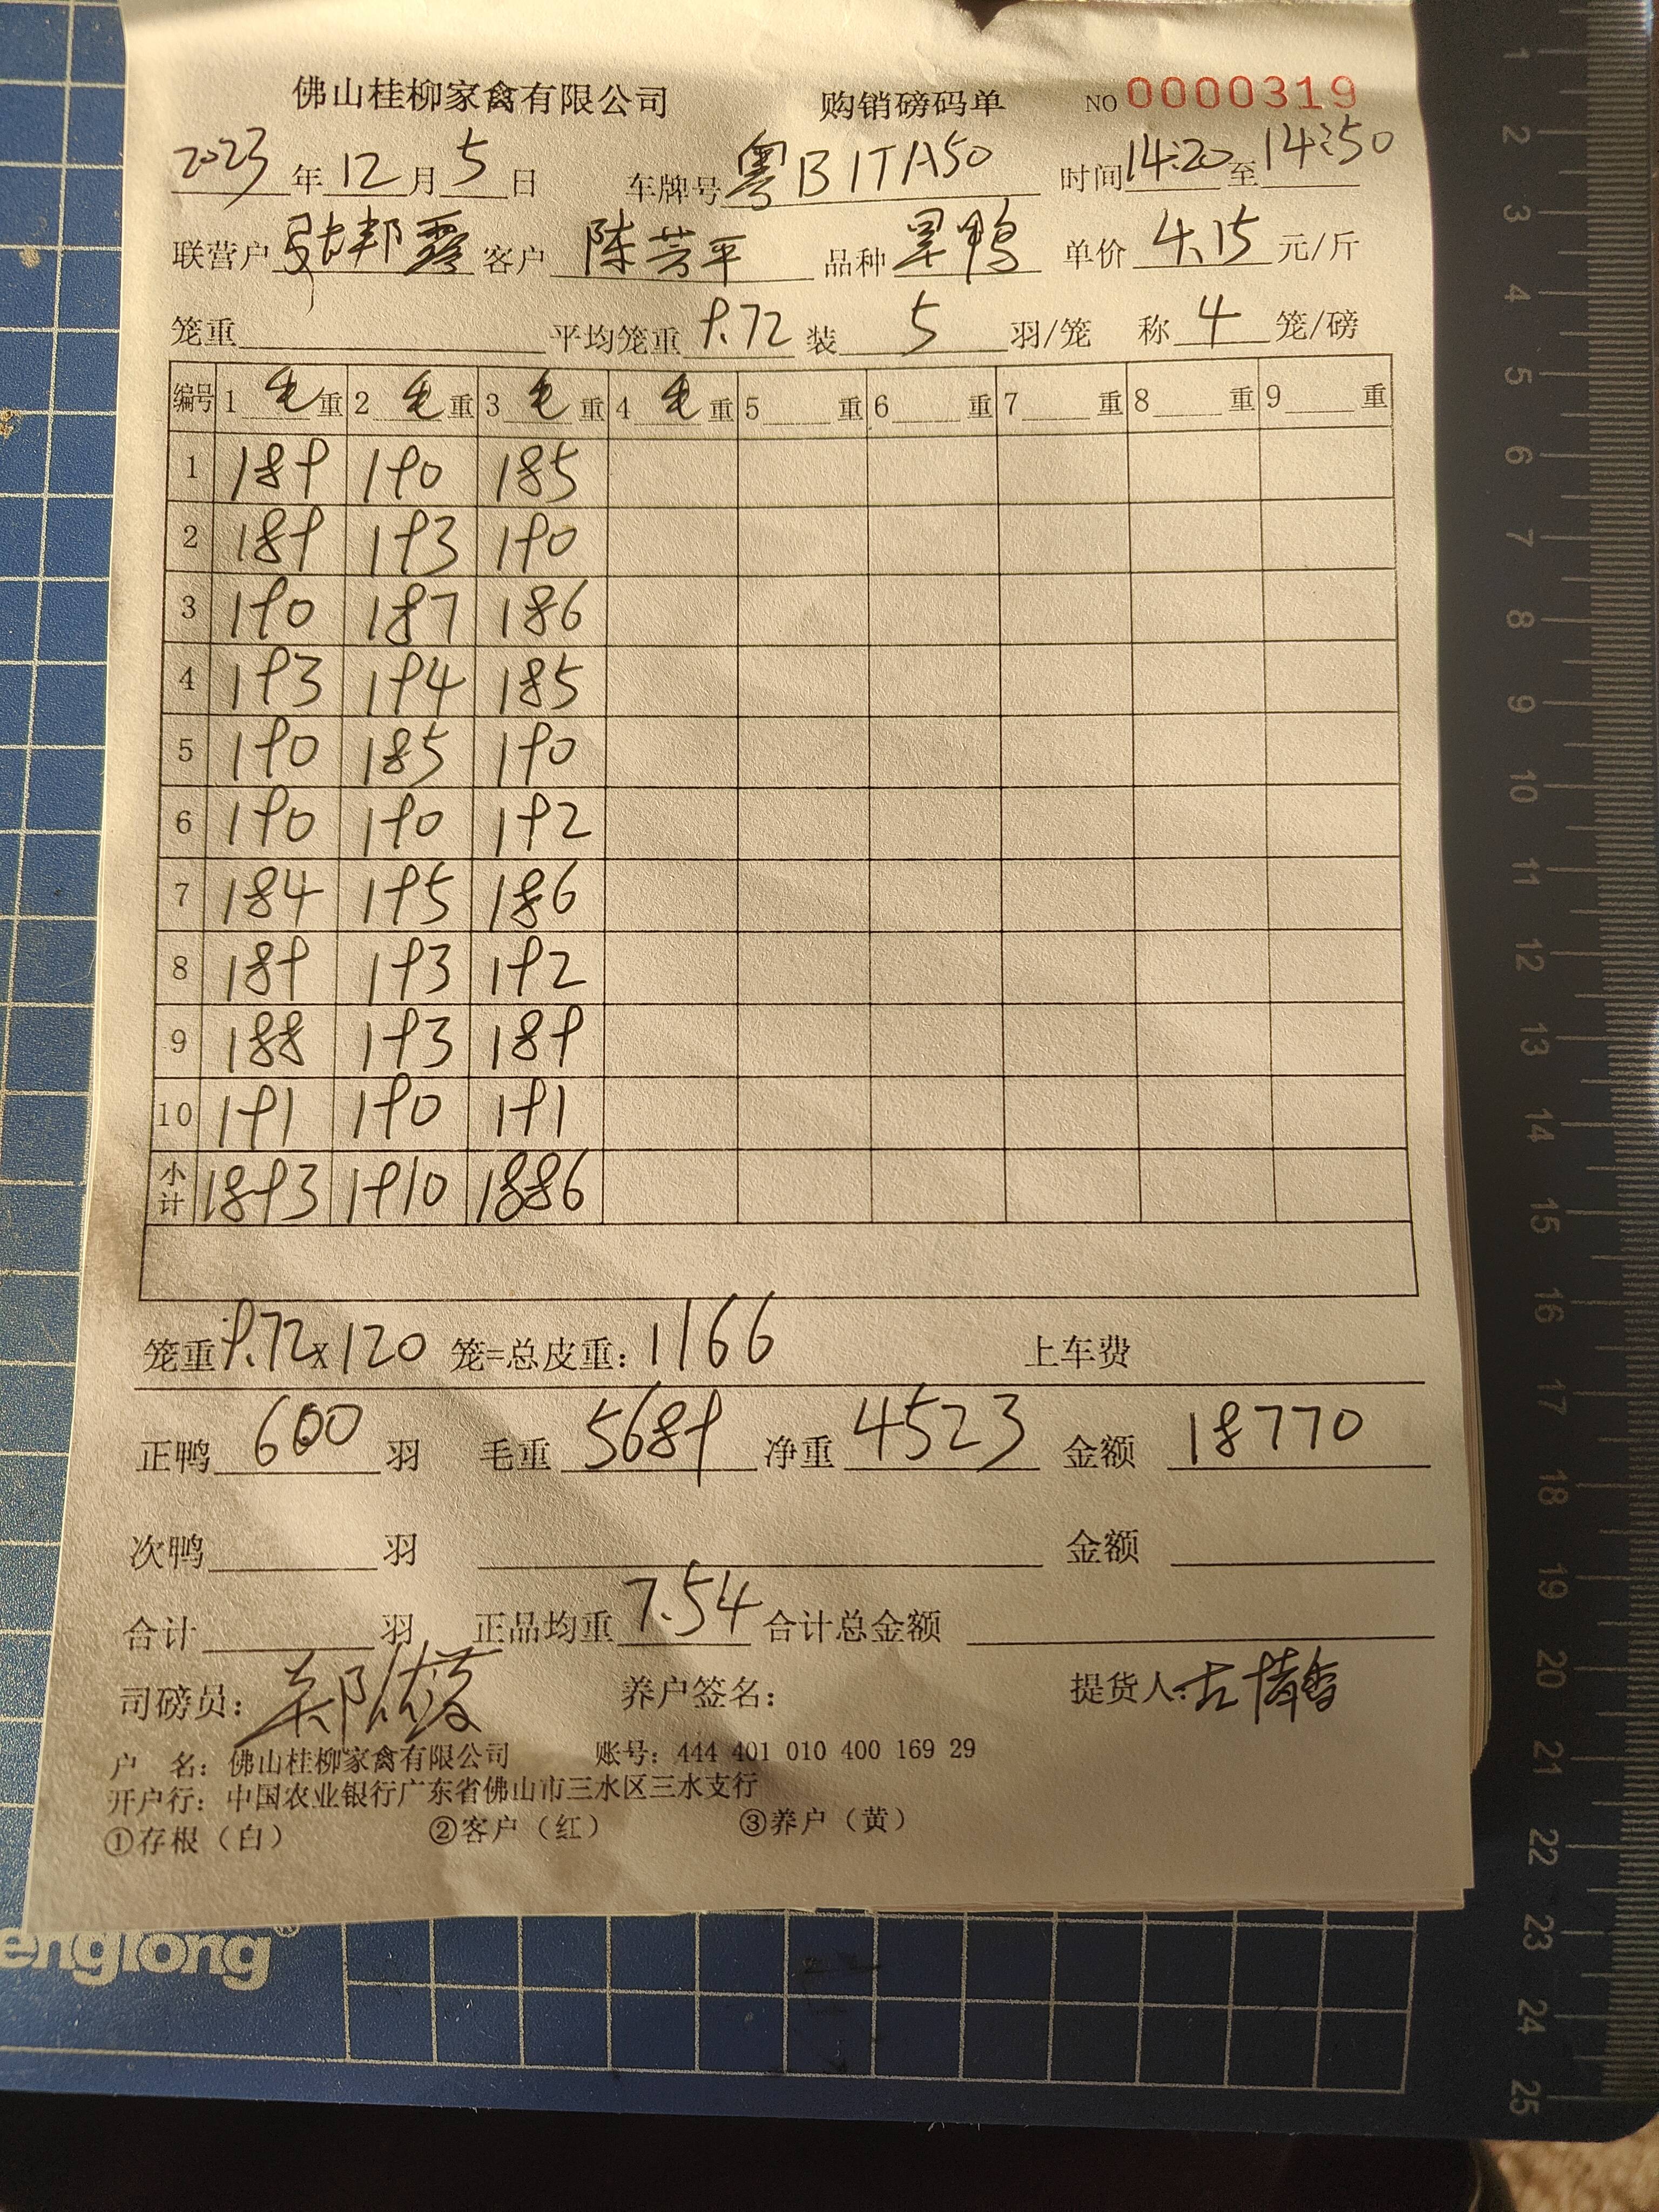 佛山桂柳家禽有限公司 购销磅码单 NO 0000319
2023年12月5日 车牌号 粤B1TA50 时间14:20至14:50
联营户 张邦露 客户 陈芳平 品种 黑鸭 单价 4.15 元/斤
笼重 平均笼重 9.72 装 5 羽/笼 称 4 笼/磅
编号 1 毛 重 2 毛 重 3 毛 重 4 毛 重 5 重 6 重 7 重 8 重 9 重
1 189 190 185
2 189 193 190
3 190 187 186
4 193 194 185
5 190 185 190
6 190 190 192
7 184 195 186
8 189 193 192
9 188 193 189
10 191 190 191
小计 1893 1910 1886
笼重 9.72 x 120 笼=总皮重: 1166 上车费
正鸭 600 羽 毛重 5689 净重 4523 金额 18770
次鸭 羽 金额
合计 羽 正品均重 7.54 合计总金额
司磅员: 养户签名: 提货人:
户 名: 佛山桂柳家禽有限公司 账号: 444 401 010 400 169 29
开户行: 中国农业银行广东省佛山市三水区三水支行
①存根（白） ②客户（红） ③养户（黄）
englong®
1 2 3 4 5 6 7 8 9 10 11 12 13 14 15 16 17 18 19 20 21 22 23 24 25